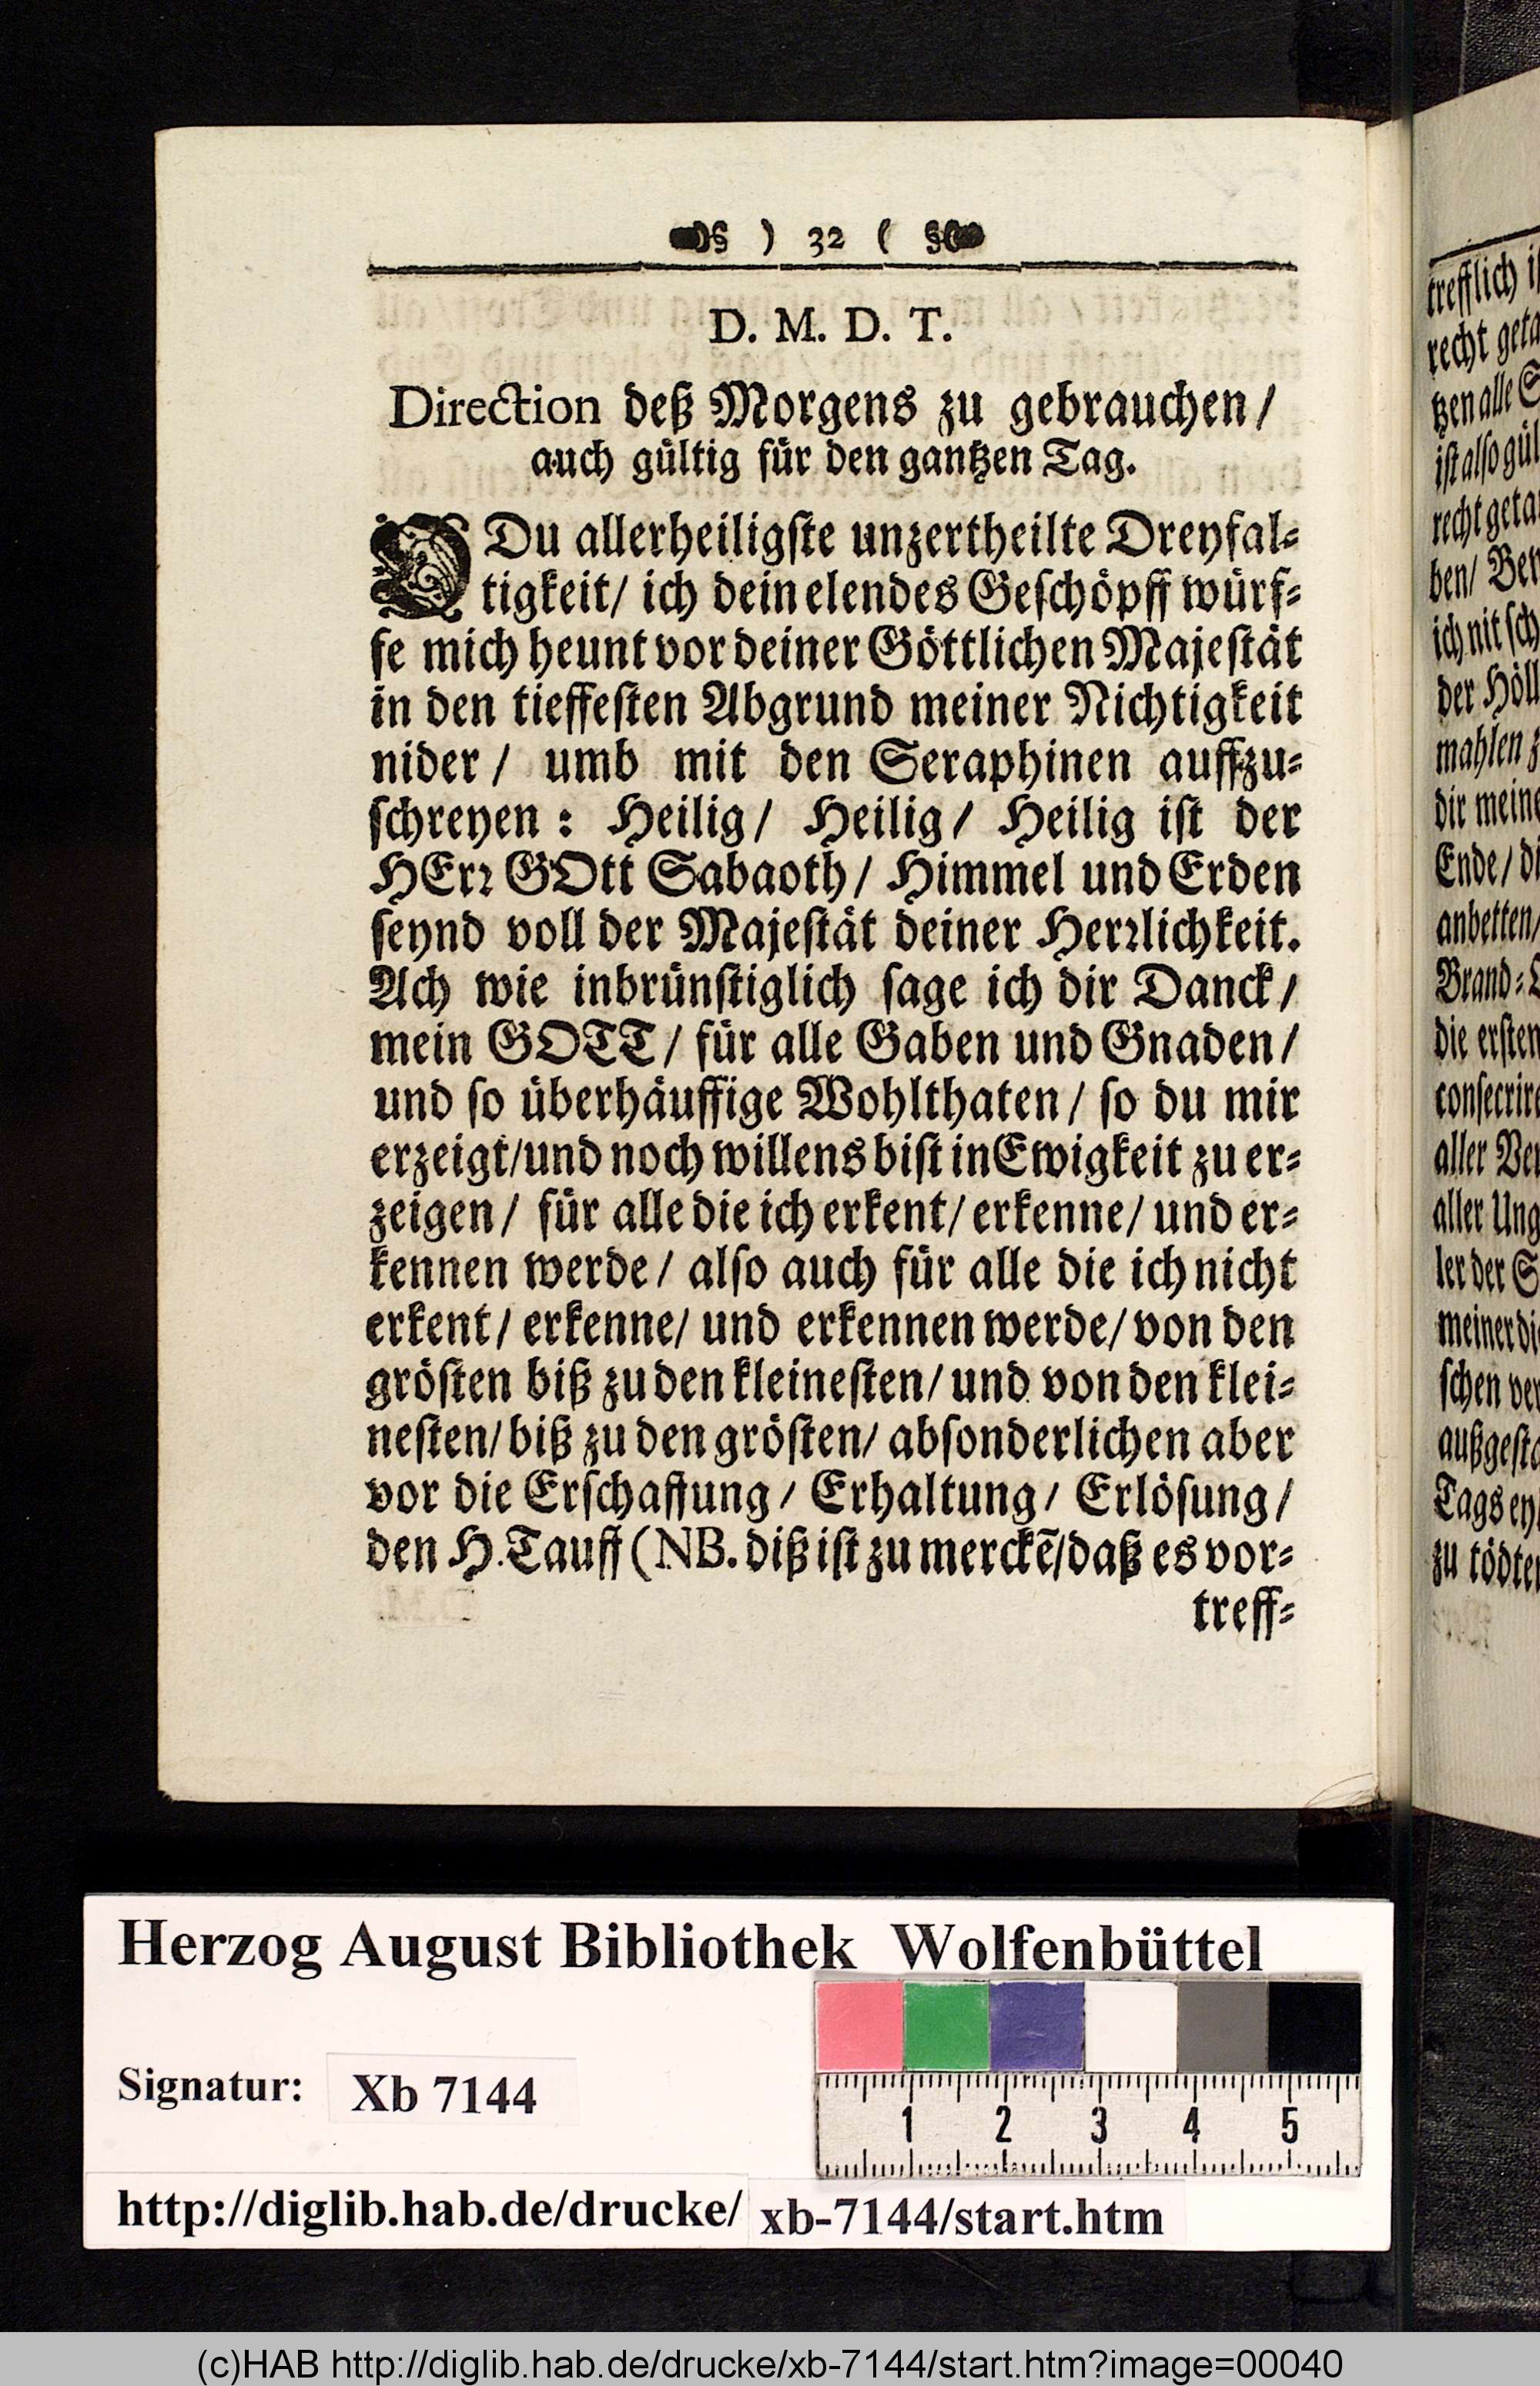 ) 32 (
D. M. D. T.
Direction deß Morgens zu gebrauchen /
auch gültig für den gantzen Tag.
O Du allerheiligſte unzertheilte Dreyfal⸗
tigkeit/ ich dein elendes Geſchöpff würf⸗
fe mich heunt vor deiner Göttlichen Majeſtät
in den tieffeſten Abgrund meiner Nichtigkeit
nider / umb mit den Seraphinen auffzu⸗
ſchreyen : Heilig / Heilig / Heilig iſt der
HErꝛ GOtt Sabaoth / Himmel und Erden
ſeynd voll der Majeſtät deiner Herꝛlichkeit.
Ach wie inbrünſtiglich ſage ich dir Danck /
mein GOTT / für alle Gaben und Gnaden /
und ſo überhäuffige Wohlthaten / ſo du mir
erzeigt/und noch willens biſt in Ewigkeit zu er⸗
zeigen / für alle die ich erkent/ erkenne/ und er⸗
kennen werde / alſo auch für alle die ich nicht
erkent / erkenne/ und erkennen werde/ von den
gröſten biß zu den kleineſten/ und von den klei⸗
neſten/ biß zu den gröſten/ abſonderlichen aber
vor die Erſchaffung / Erhaltung / Erlöſung /
den H. Tauff (NB. diß iſt zu merckē/daß es vor⸗
treff⸗
trefflich
recht
tzen alle
iſt alſo
recht
ben/
ich nit
der
mahlen
dir
Ende /
anbetten/
Brand⸗
die erſten
aller
aller
ler der
meiner
ſchen
Tags
zu
Herzog August Bibliothek Wolfenbüttel
Signatur: Xb 7144
1 2 3 4 5
http://diglib.hab.de/drucke/ xb-7144/start.htm
(c)HAB http://diglib.hab.de/drucke/xb-7144/start.htm?image=00040